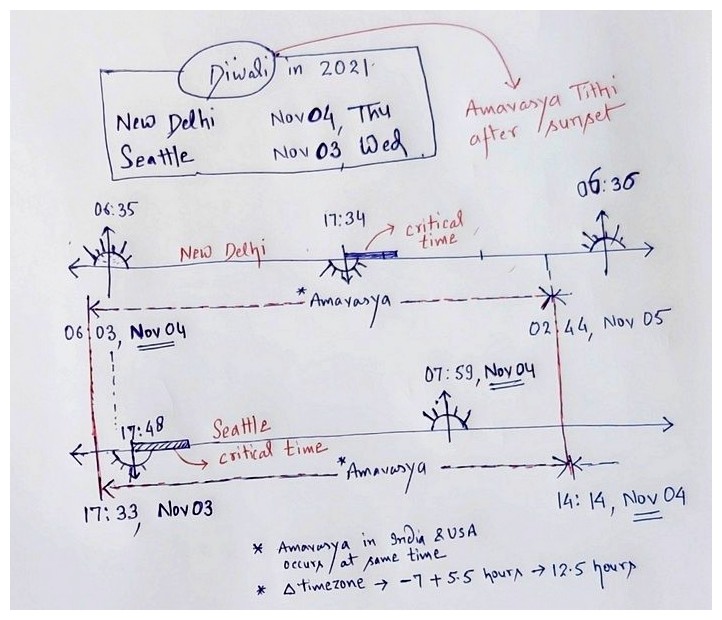 Diwali in 2021
New Delhi Nov 04, Thu
Seattle Nov 03 Wed
Amavasya Tithi
after sunset
06:35
17:34
critical
time
06:36
New Delhi
* Amavasya
06:03, Nov 04
02:44, Nov 05
07:59, Nov 04
17:48
Seattle
critical time
*Amavasya
17:33, Nov 03
14:14, Nov 04
* Amavasya in India & USA
occurs at same time
* Δ timezone → -7 + 5.5 hours → 12.5 hours